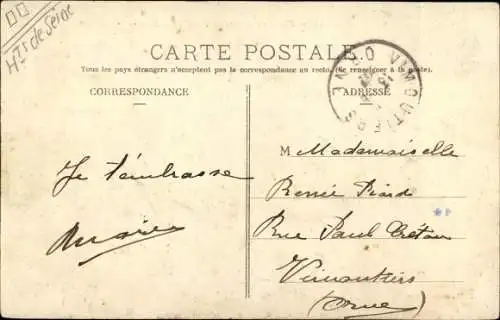 Hts de Seine
CARTE POSTALE
Tous les pays étrangers n'acceptent pas la correspondance au recto. (Se renseigner à la poste).
CORRESPONDANCE
ADRESSE
VIMOUTIERS
ORNE
Je t'embrasse
M Mademoiselle
Renée
Rue Paul Crétau
Vimoutiers
(Orne)